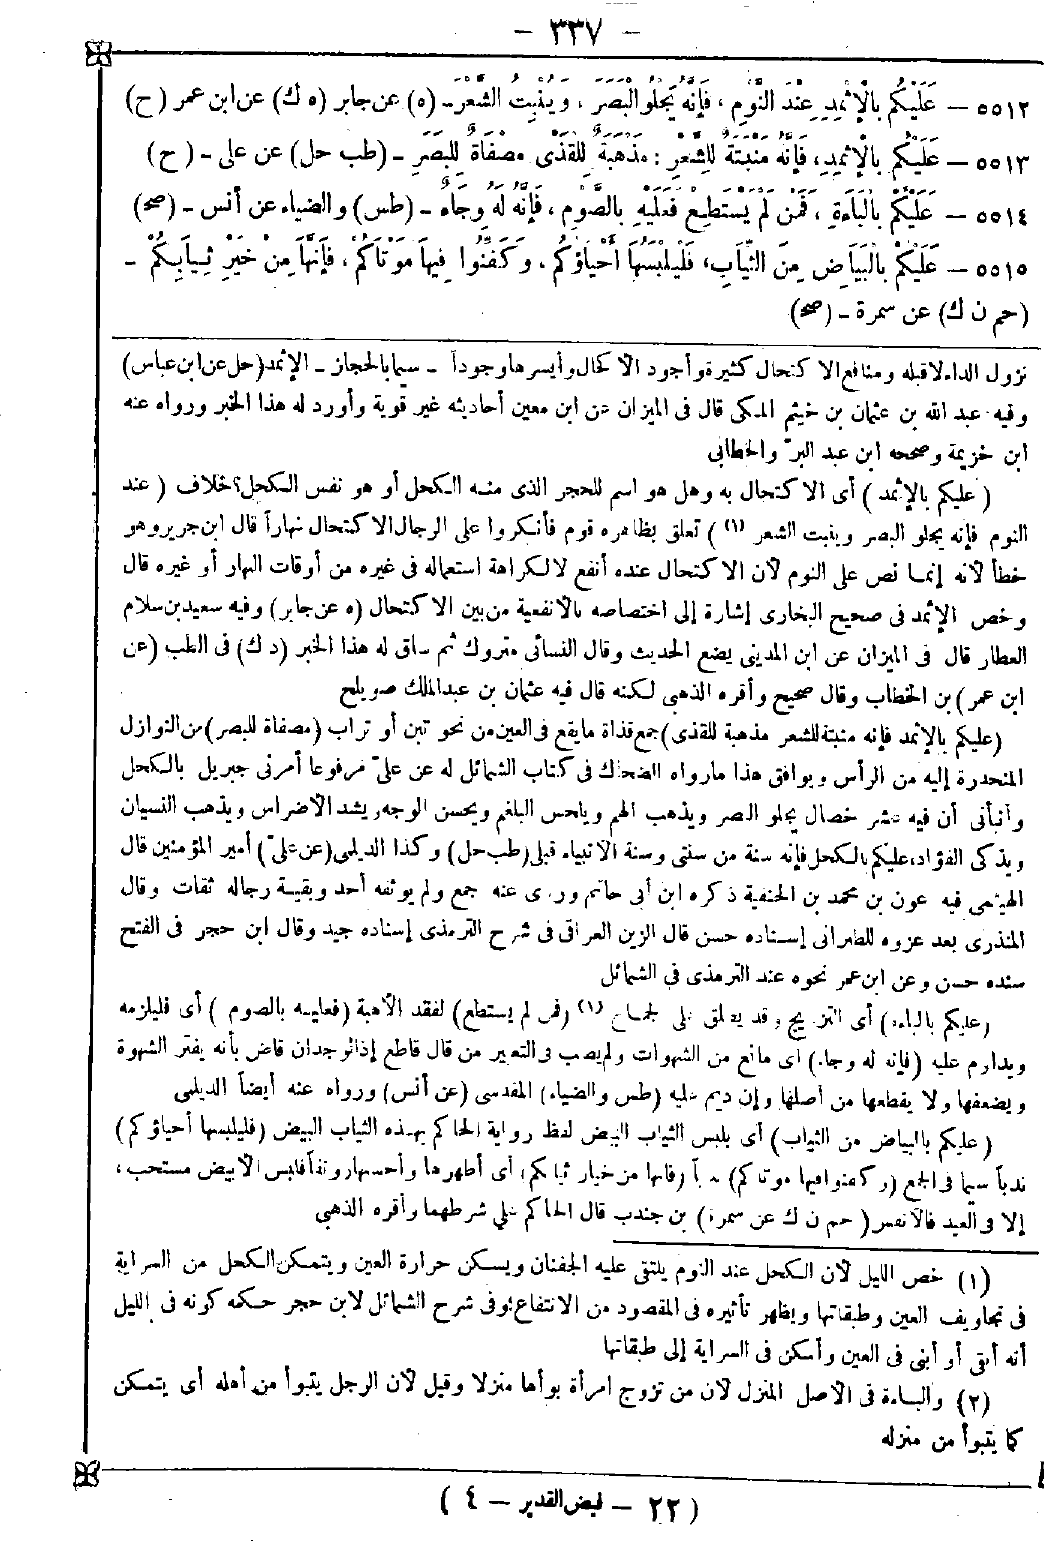 — ٣٣٧ —
٥٥١٢ — عَلَيْكُمْ بِالْإِثْمِدِ عِنْدَ النَّوْمِ ، فَإِنَّهُ يَجْلُو الْبَصَرَ ، وَيُنْبِتُ الشَّعَرَ ـ (ه) عن جابر (ه ك) عن ابن عمر (ح)
٥٥١٣ — عَلَيْكُمْ بِالْإِثْمِدِ، فَإِنَّهُ مَنْبَتَةٌ لِلشَّعَرِ : مَذْهَبَةٌ لِلْقَذَى مِصْفَاةٌ لِلْبَصَرِ ـ (طب حل) عن على ـ (ح)
٥٥١٤ — عَلَيْكُمْ بِالْبَاءَةِ ، فَمَنْ لَمْ يَسْتَطِعْ فَعَلَيْهِ بِالصَّوْمِ ، فَإِنَّهُ لَهُ وِجَاءٌ ـ (طس) والضياء عن أنس ـ (صح)
٥٥١٥ — عَلَيْكُمْ بِالْبَيَاضِ مِنَ الثِّيَابِ، فَلْيَلْبَسْهَا أَحْيَاؤُكُمْ ، وَكَفِّنُوا فِيهَا مَوْتَاكُمْ ، فَإِنَّهَا مِنْ خَيْرِ ثِيَابِكُمْ ـ
(حم ن ك) عن سمرة ـ (صح)
نزول الداء لا قبله ومنافع الاكتحال كثيرة وأجود الأكحال وأيسرها وجوداً ـ سيما بالحجاز ـ الإثمد (حل عن ابن عباس)
وفيه عبد الله بن عثمان بن خيثم المكى قال فى الميزان عن ابن معين أحاديثه غير قوية وأورد له هذا الخبر ورواه عنه
ابن خزيمة وصححه ابن عبد البرّ والخطابى
(عليكم بالإثمد) أى الاكتحال به وهل هو اسم للحجر الذى منه الكحل أو هو نفس الكحل؟ خلاف (عند
النوم فإنه يجلو البصر وينبت الشعر (١) ) تعلق بظاهره قوم فأنكروا على الرجال الاكتحال نهاراً قال ابن جرير وهو
خطأ لأنه إنما نص على النوم لأن الاكتحال عنده أنفع لا لكراهة استعماله فى غيره من أوقات النهار أو غيره قال
وخص الإثمد فى صحيح البخارى إشارة إلى اختصاصه بالأنفعية من بين الاكتحال (ه عن جابر) وفيه سعيد بن سلام
العطار قال فى الميزان عن ابن المدينى يضع الحديث وقال النسائى متروك ثم ساق له هذا الخبر (د ك) فى الطب (عن
ابن عمر) بن الخطاب وقال صحيح وأقره الذهبى لكنه قال فيه عثمان بن عبد الملك صويلح
(عليكم بالإثمد فإنه منبتة للشعر مذهبة للقذى) جمع قذاة ما يقع فى العين من نحو تبن أو تراب (مصفاة للبصر) من النوازل
المنحدرة إليه من الرأس ويوافق هذا ما رواه الضحاك فى كتاب الشمائل له عن علىّ مرفوعا أمرنى جبريل بالكحل
وأنبأنى أن فيه عشر خصال يجلو البصر ويذهب الهم ويلحس البلغم ويحسن الوجه ويشد الأضراس ويذهب النسيان
ويذكى الفؤاد، عليكم بالكحل فإنه سنة من سنتى وسنة الأنبياء قبلى (طب حل) وكذا الديلمى (عن علىّ) أمير المؤمنين قال
الهيثمى فيه عون بن محمد بن الحنفية ذكره ابن أبى حاتم وروى عنه جمع ولم يوثقه أحد وبقية رجاله ثقات وقال
المنذرى بعد عزوه للطبرانى إسناده حسن قال الزين العراقى فى شرح الترمذى إسناده جيد وقال ابن حجر فى الفتح
سنده حسن وعن ابن عمر نحوه عند الترمذى فى الشمائل
(عليكم بالباءة) أى التزويج وقد يطلق على الجماع (١) (فمن لم يستطع) لفقد الأهبة (فعليه بالصوم) أى فليلزمه
ويداوم عليه (فإنه له وجاء) أى مانع من الشهوات ولم يصب فى التعبير من قال قاطع إذ الوجدان قاض بأنه يفتر الشهوة
ويضعفها ولا يقطعها من أصلها وإن ديم عليه (طس والضياء) المقدسى (عن أنس) ورواه عنه أيضاً الديلمى
(عليكم بالبياض من الثياب) أى بلبس الثياب البيض لفظ رواية الحاكم بهذه الثياب البيض (فليلبسها أحياؤكم)
ندباً سيما فى الجمع (وكفنوا فيها موتاكم) ندباً (فإنها من خيار ثيابكم) أى أطهرها وأحسنها رونقاً فلبس الأبيض مستحب،
إلا فى العيد فالأنفس (حم ن ك عن سمرة) بن جندب قال الحاكم على شرطهما وأقره الذهبى
(١) خص الليل لأن الكحل عند النوم يلتقى عليه الجفنان ويسكن حرارة العين ويتمكن الكحل من السراية
فى تجاويف العين وطبقاتها ويظهر تأثيره فى المقصود من الانتفاع؛ وفى شرح الشمائل لابن حجر حكمه كونه فى الليل
أنه أبقى أو أبقى فى العين وأسكن فى السراية إلى طبقاتها
(٢) والباءة فى الأصل المنزل لأن من تزوج امرأة بوأها منزلا وقيل لأن الرجل يتبوأ من أهله أى يتمكن
كما يتبوأ من منزله
(٢٢ — فيض القدير — ٤)